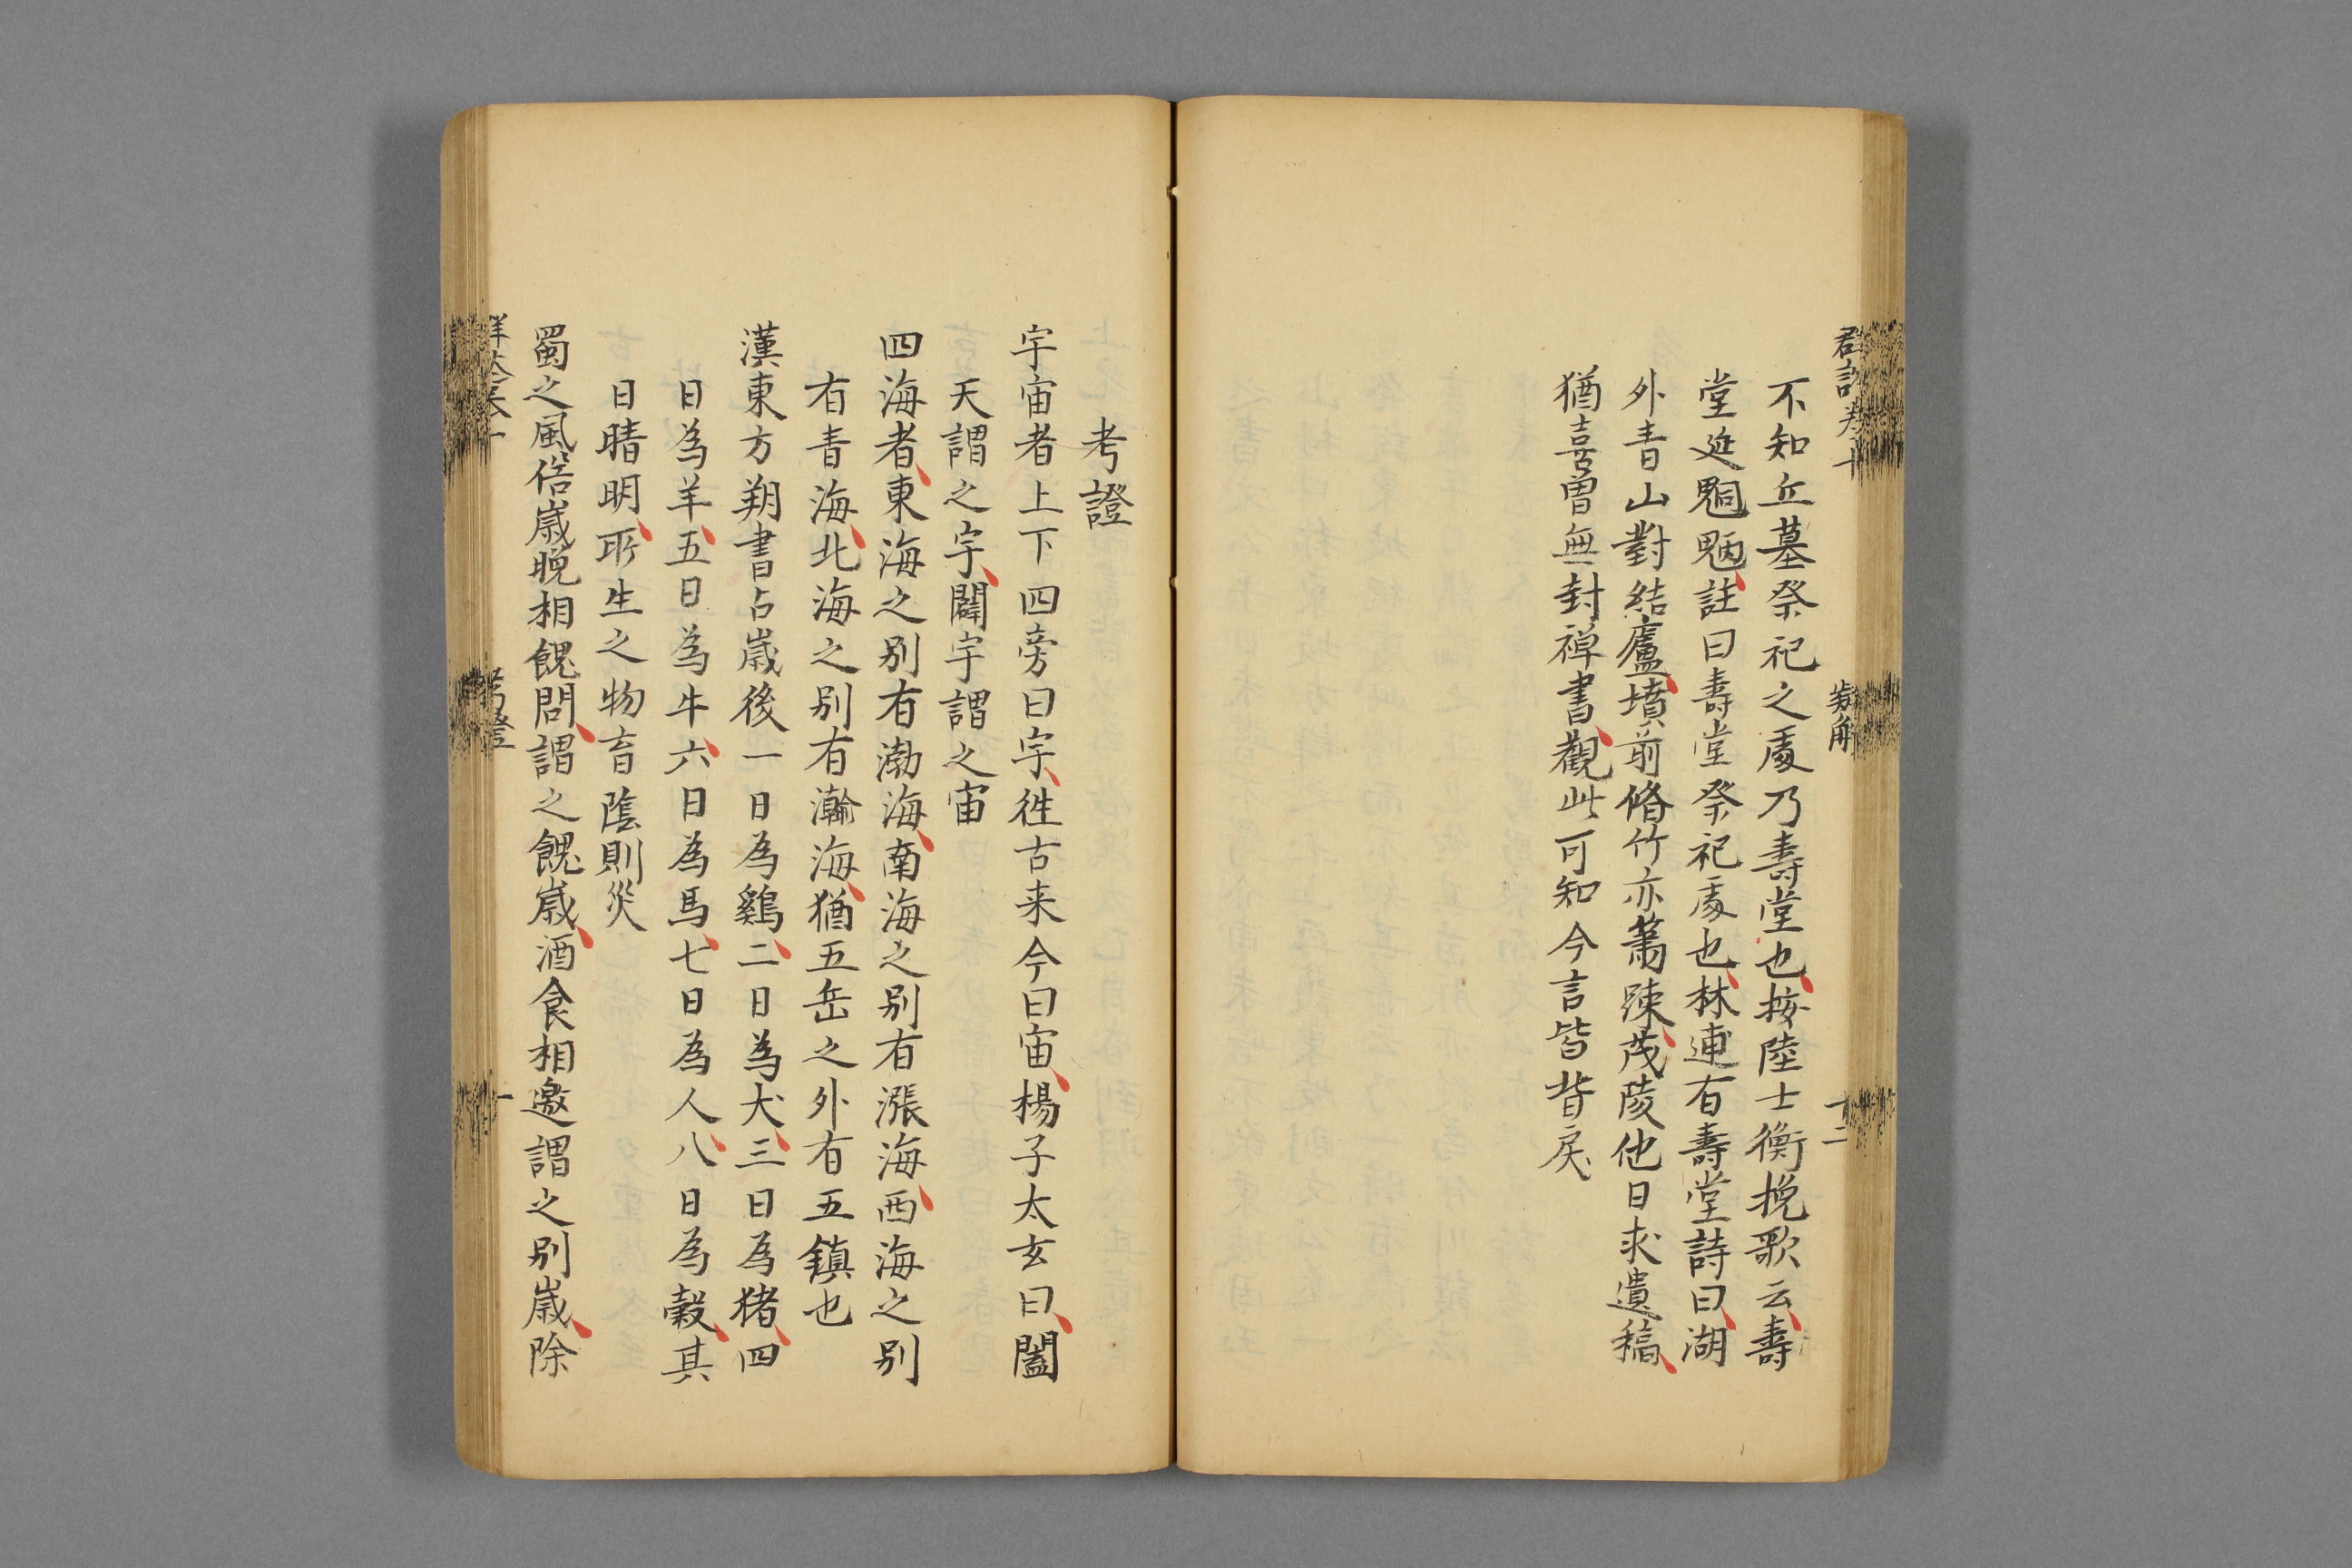 不知丘墓祭祀之處乃壽堂也按陸士衡挽歌云壽
堂延魍魎註曰壽堂祭祀處也林逋有壽堂詩曰湖
外青山對結廬墳前脩竹亦蕭踈茂陵他日求遺稿
猶喜曾無封禪書觀此可知今言皆背戾
考證
宇宙者上下四旁曰宇徃古来今曰宙楊子太玄曰闔
天謂之宇闢宇謂之宙
四海者東海之别有渤海南海之别有漲海西海之别
有青海北海之别有瀚海猶五岳之外有五鎮也
漢東方朔書占歳後一日為鷄二日為犬三日為猪四
日為羊五日為牛六日為馬七日為人八日為穀其
日晴明所生之物育隂則災
蜀之風俗歳晩相餽問謂之餽歳酒食相邀謂之别歳除
考證
一